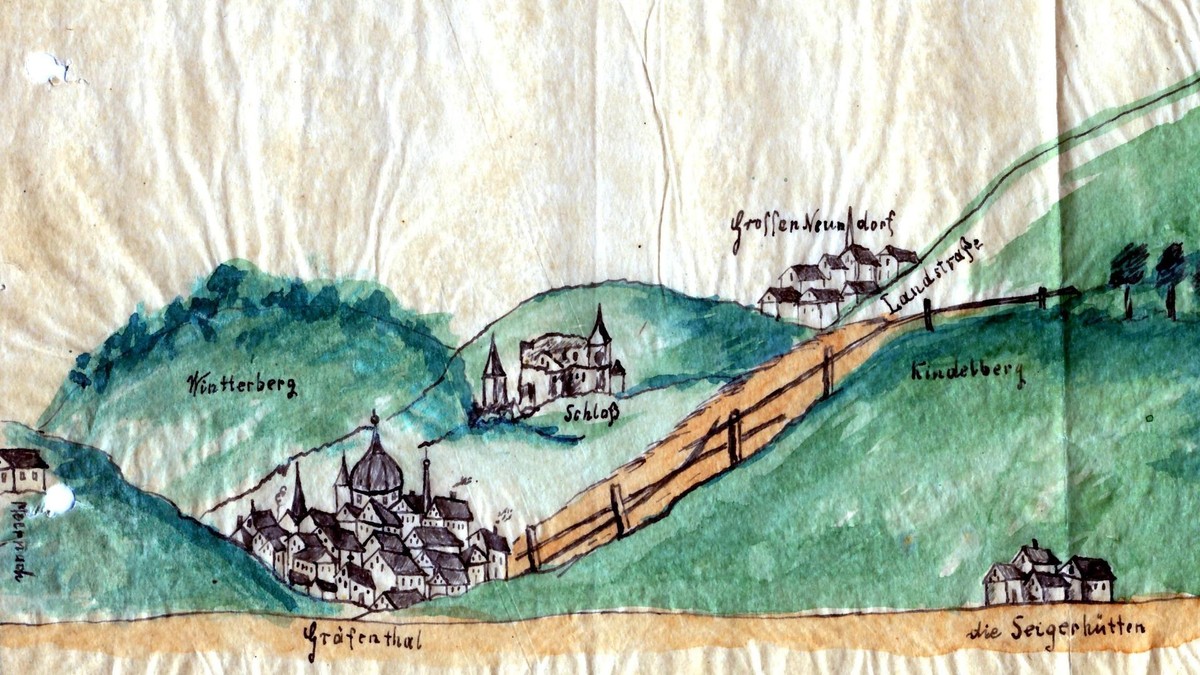 Grossen Neundorf
Landstraße
Wintterberg
Kindelberg
Schloß
Gräfenthal
die Seigerhütten